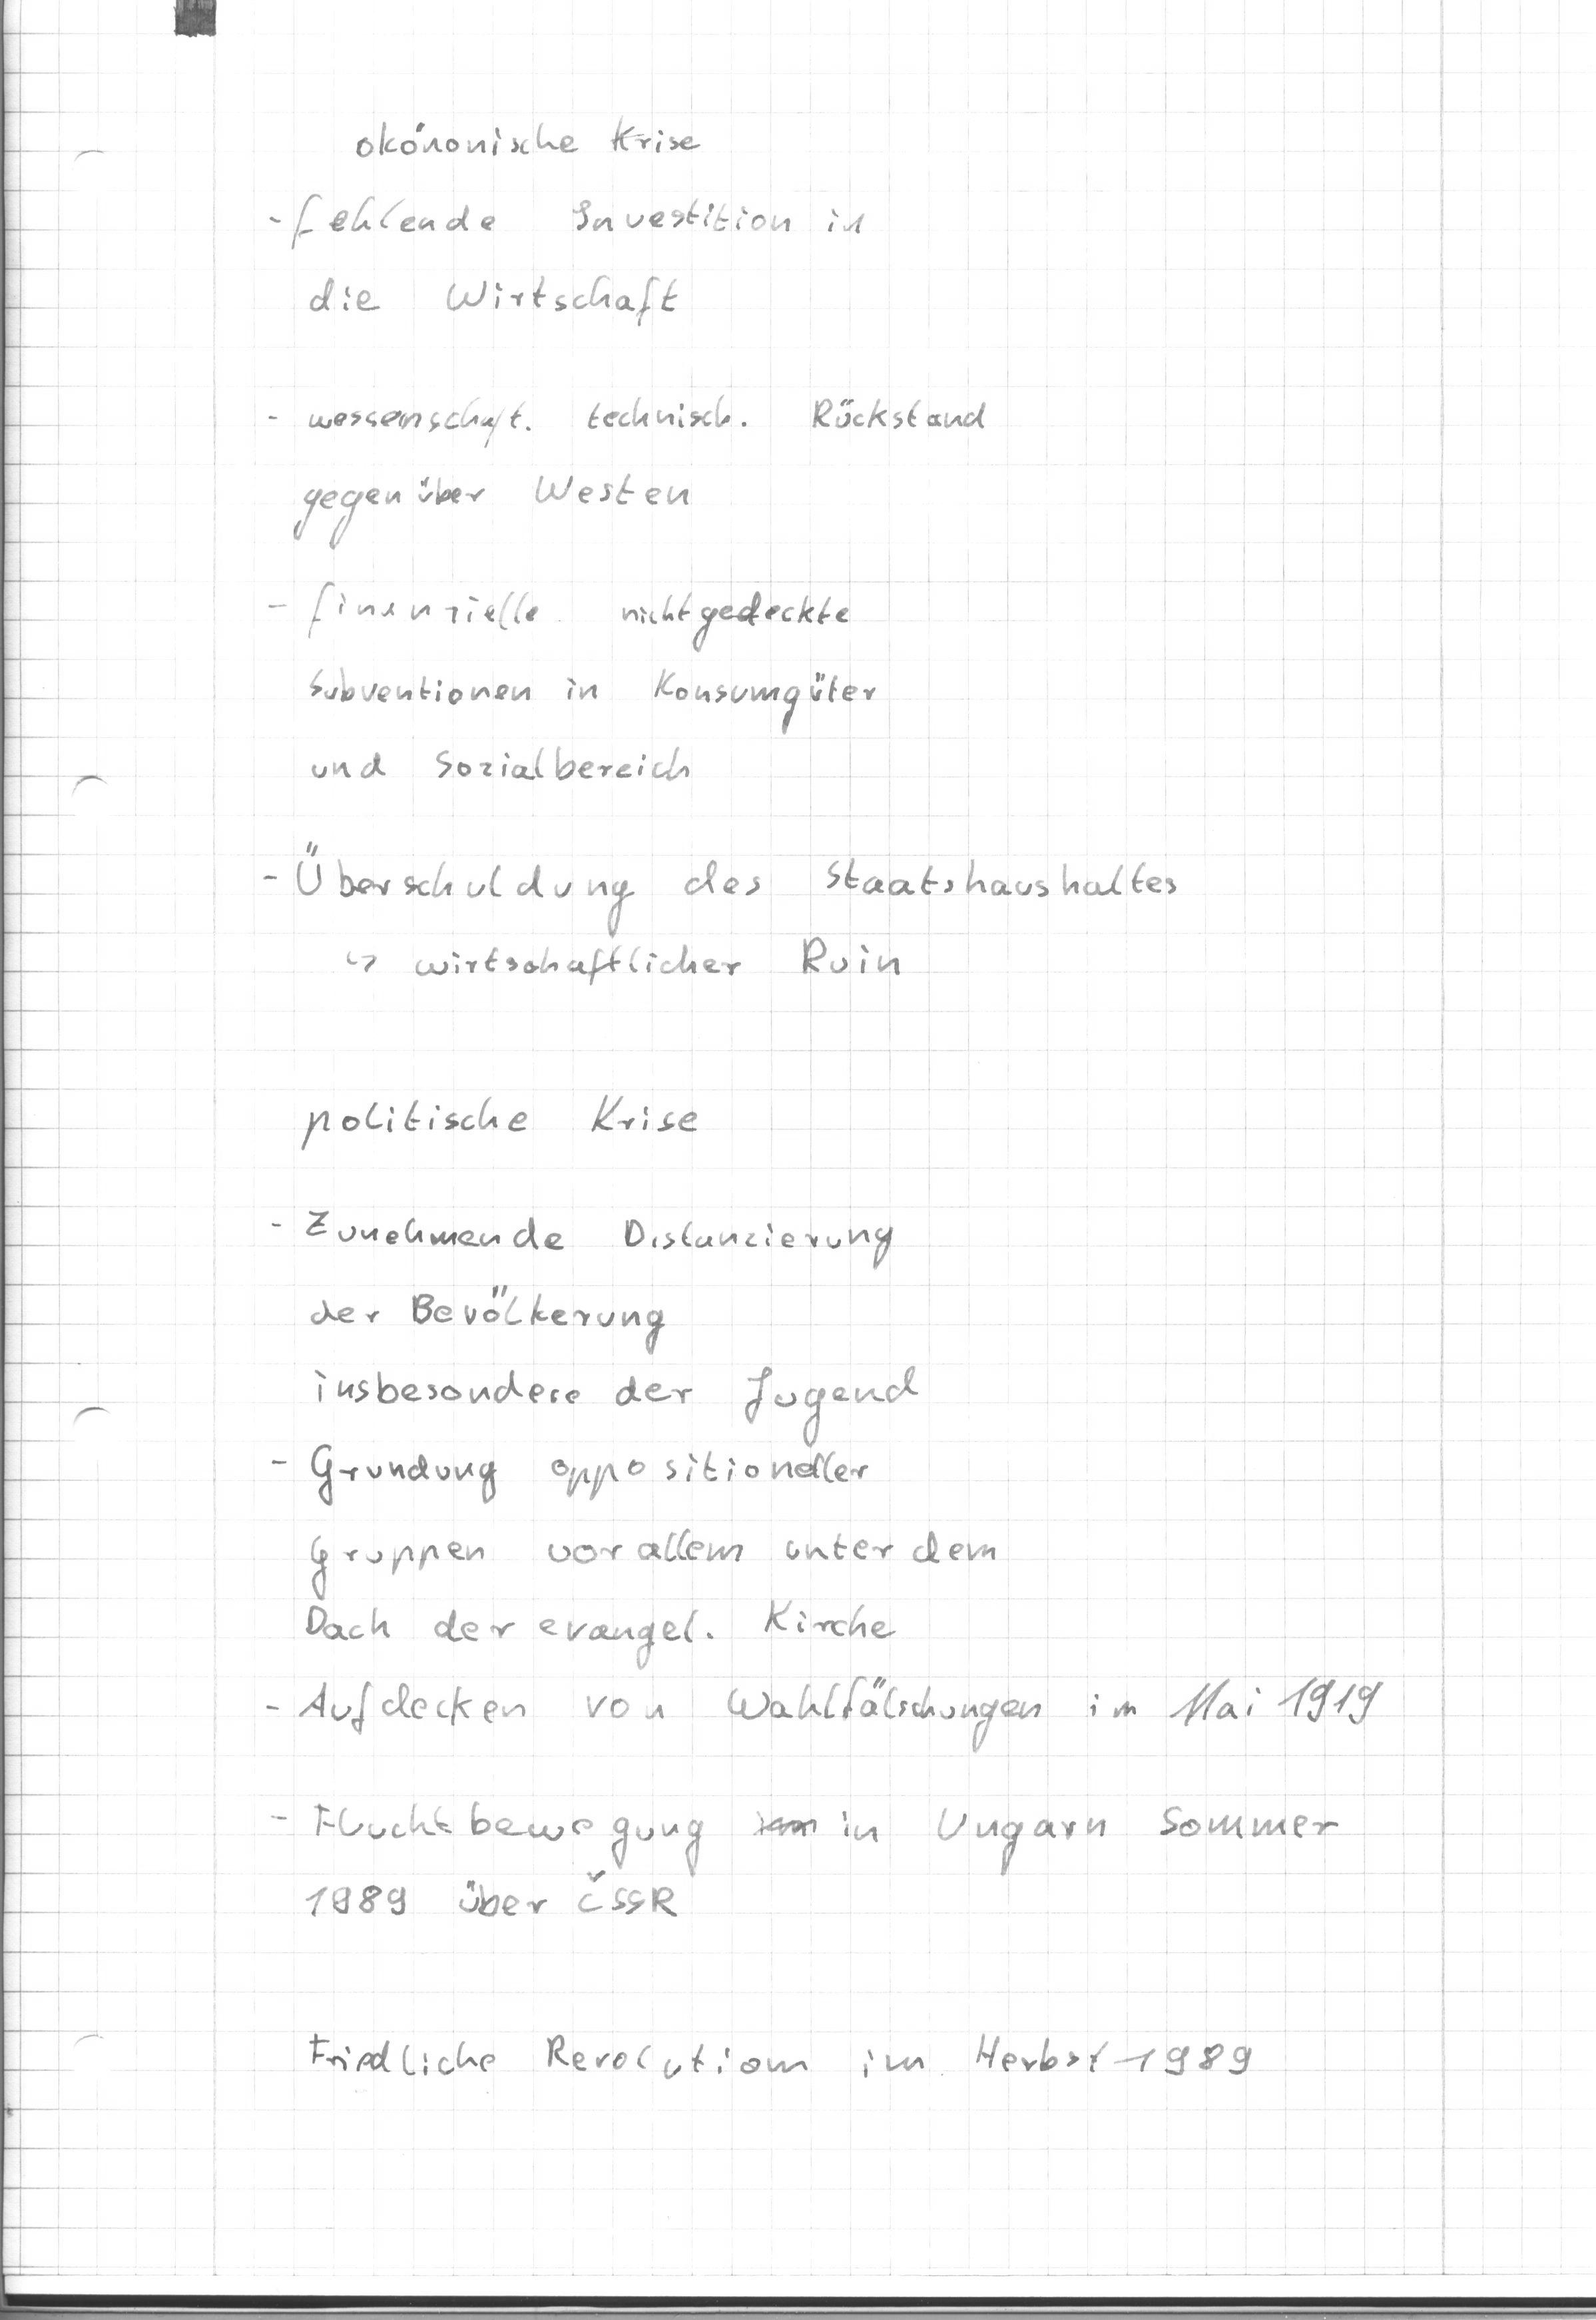 okönonische Krise
- fehlende Investition in
die Wirtschaft
- wessenschaft. technisch. Rückstand
gegenüber Westen
- finanzielle nichtgedeckte
Subventionen in Konsumgüter
und Sozialbereich
- Überschuldung des Staatshaushaltes
↳ wirtschaftlicher Ruin
politische Krise
- Zunehmende Distanzierung
der Bevölkerung
insbesondere der Jugend
- Grundung oppositioneller
Gruppen vor allem unter dem
Dach der evangel. Kirche
- Aufdecken von Wahlfälschungen im Mai 1919
- Fluchtbewegung in Ungarn Sommer
1989 über ČSSR
Friedliche Revolution im Herbst 1989